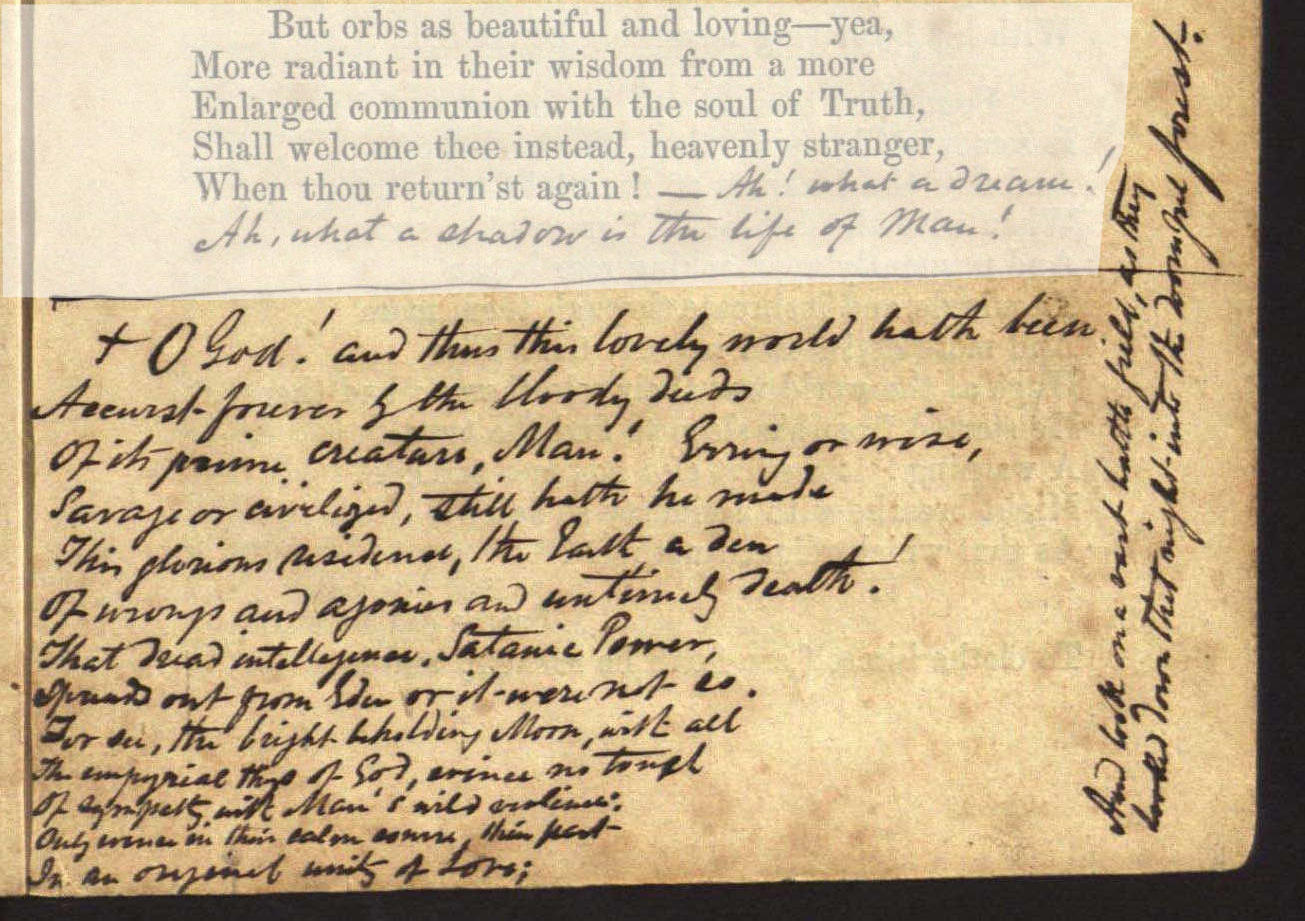 But orbs as beautiful and loving—yea,
More radiant in their wisdom from a more
Enlarged communion with the soul of Truth,
Shall welcome thee instead, heavenly stranger,
When thou return'st again! — Ah! what a dream!
Ah, what a shadow is the life of Man!
+ O God! and thus this lovely world hath been
Accurst forever by the bloody deeds
Of its prime creature, Man! Erring or wise,
Savage or civilized, still hath he made
This glorious residence, the Earth a den
Of wrongs and agonies and untimely death!
That dread intelligence, Satanic Power,
out from Eden or it were not so.
For see, the bright beholding Moon, with all
The empyrial of God, evince no touch
Of sympathy with Man's wild violence;
Only evince in their calm course, their part
In an original unity of Love;
And look on a vast battle field, as they
looked down that night into the doomful forest.